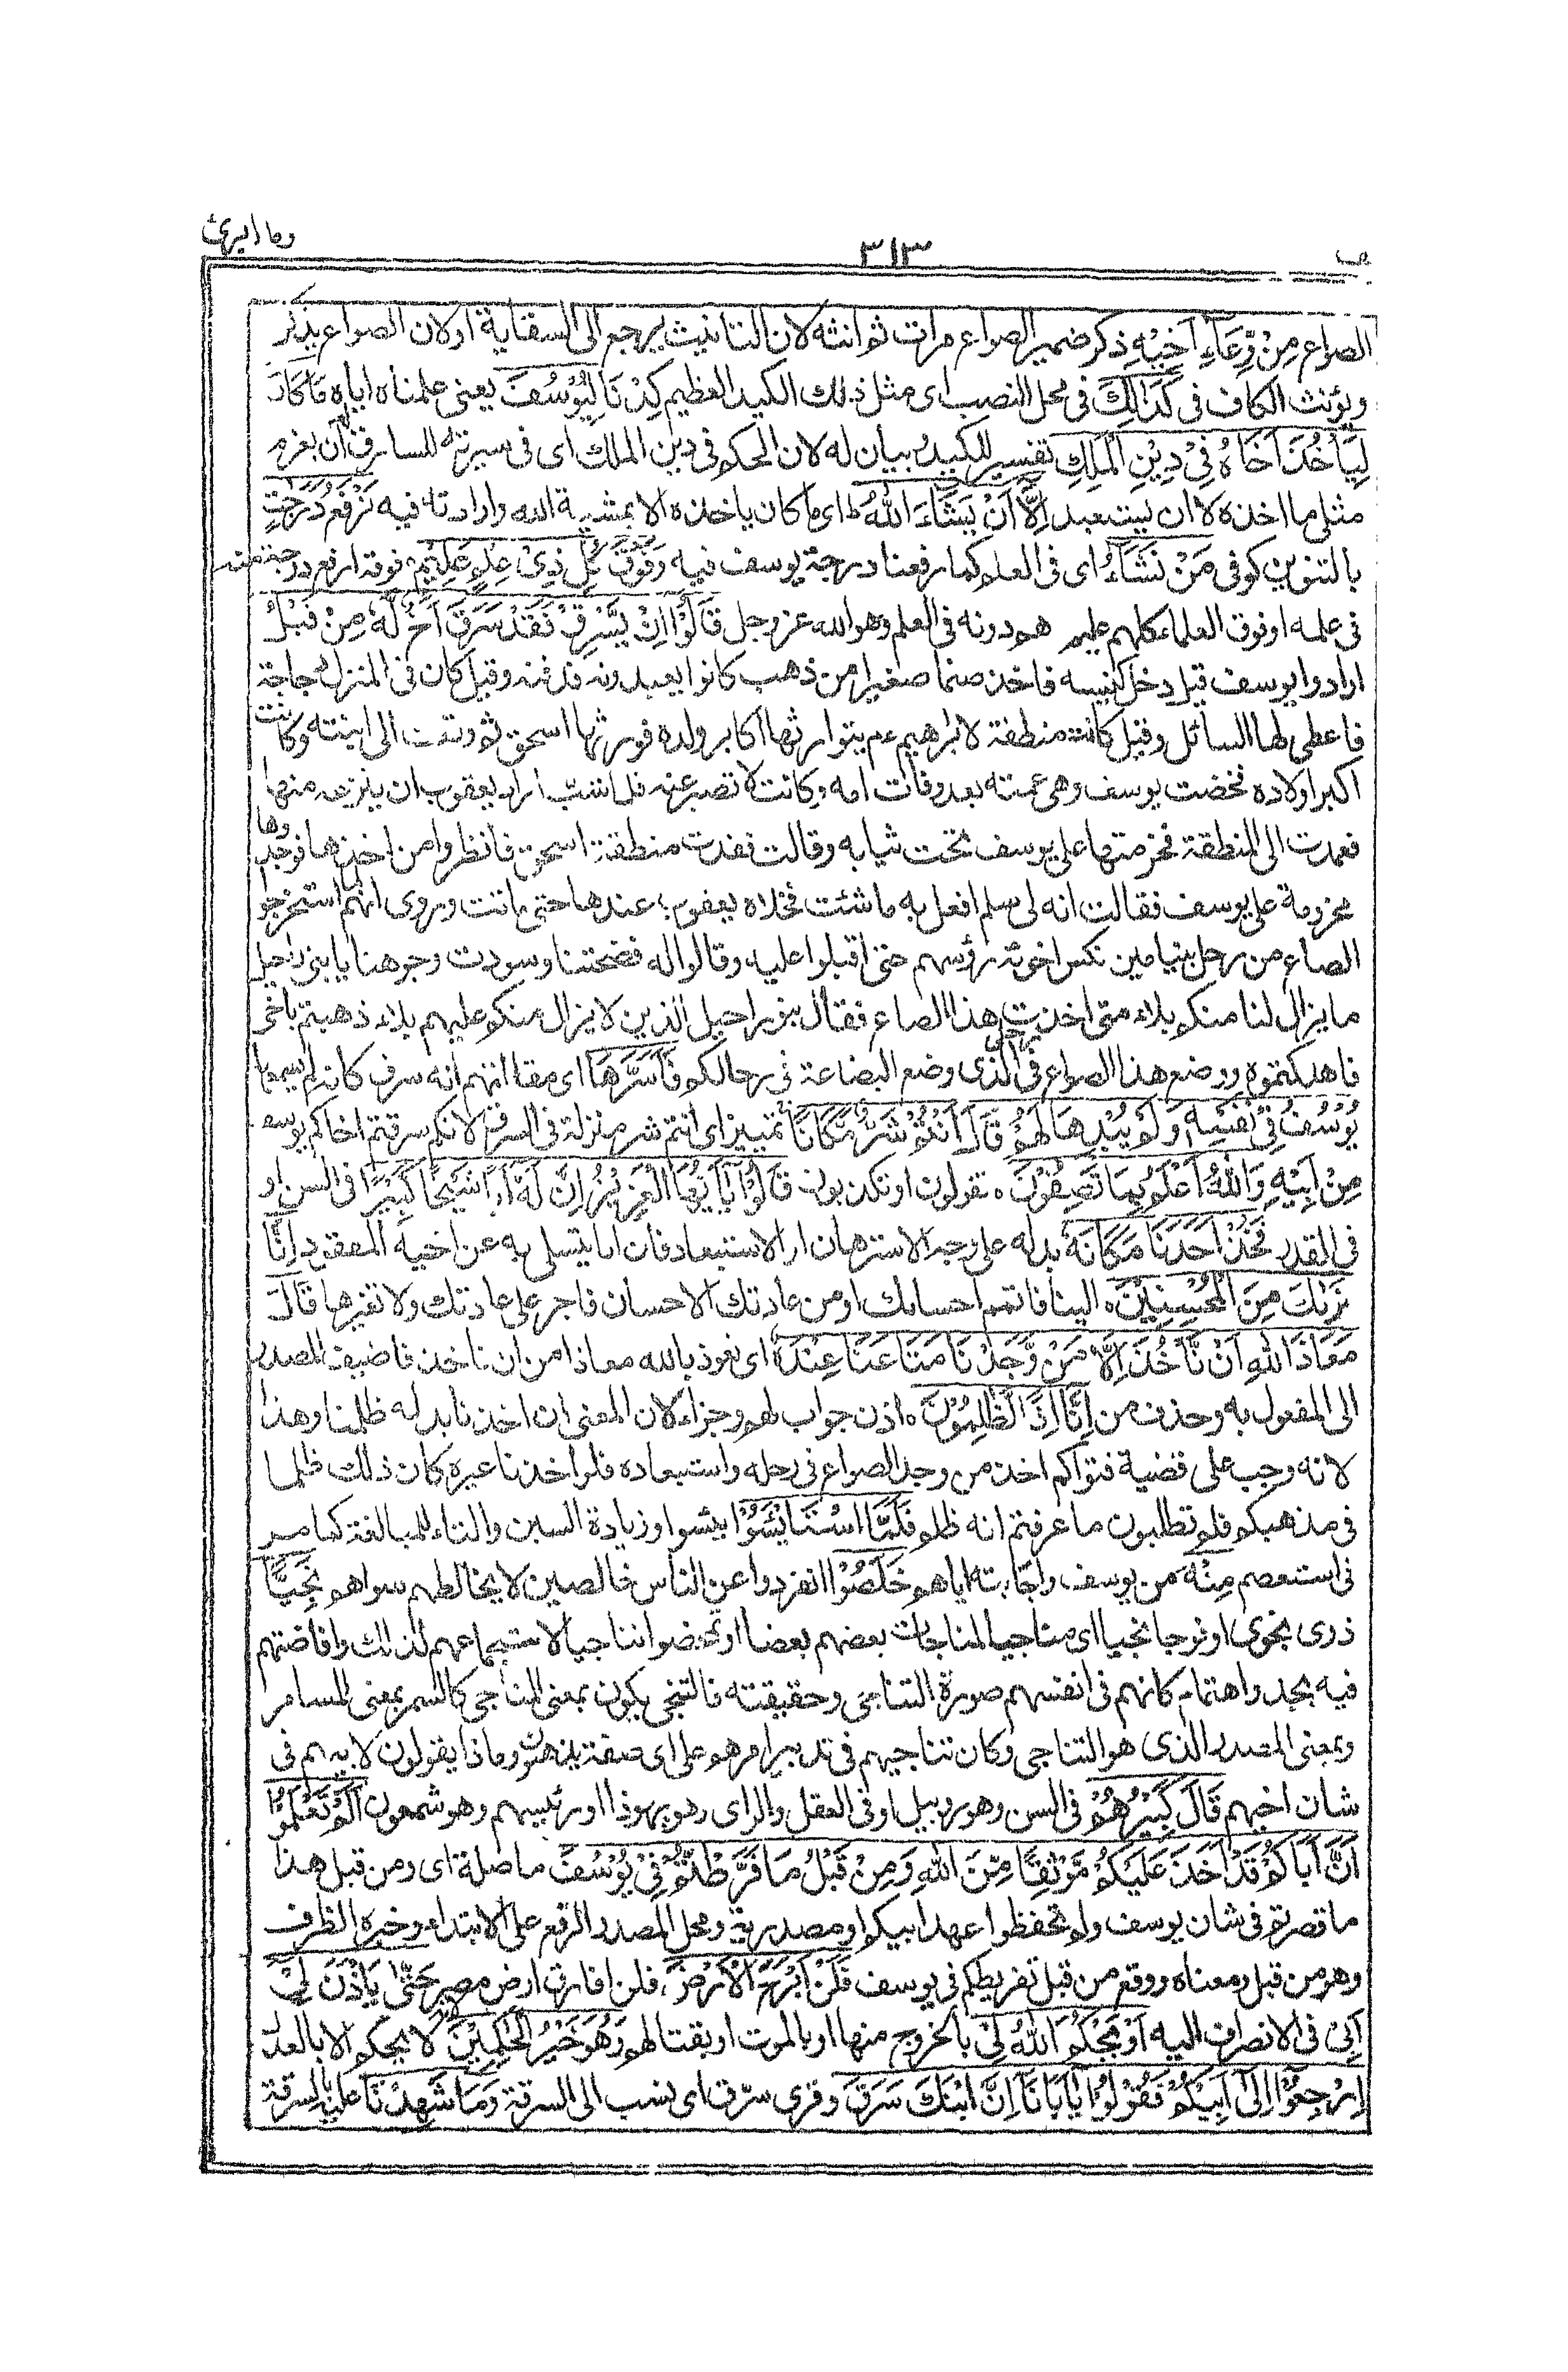 وما ابرئ
٣١٣
الصواع مِنْ وِّعَآءِ اَخِيْهِ ذكر ضمير الصواع مرات ثم انثه لان التانيث يرجع الى السقاية او لان الصواع يذكر
ويؤنث الكاف فى كَذَالِكَ فى محل النصب اى مثل ذلك الكيد العظيم كِدْنَا لِيُوْسُفَ يعنى علمناه اياه مَا كَانَ
لِيَاْخُذَ اَخَاهُ فِيْ دِيْنِ الْمَلِكِ تفسير للكيد وبيان له لان الحكم فى دين الملك اى فى سيرته للسارق ان يغرم
مثلى ما اخذه لا ان يستعبد اِلَّا اَنْ يَّشَآءَ اللّٰهُ ط اى ما كان ياخذه الا بمشية الله وارادته فيه نَرْفَعُ دَرَجٰتٍ
بالتنوين كوفى مَنْ نَّشَآءُ اى فى العلم كما رفعنا درجة يوسف فيه وَفَوْقَ كُلِّ ذِيْ عِلْمٍ عَلِيْمٌ فوقه ارفع درجة منه
فى علمه او فوق العلماء كلهم عليم هم دونه فى العلم وهو الله عز وجل قَالُوْا اِنْ يَّسْرِقْ فَقَدْ سَرَقَ اَخٌ لَّهٗ مِنْ قَبْلُ
ارادوا يوسف قيل دخل كنيسه فاخذ صنما صغيرا من ذهب كانوا يعبدونه فدفنه وقيل كان فى المنزل دجاجة
فاعطى لها السائل وقيل كانت منطقة لابرهيم عم يتوارثها اكابر ولده فورثها اسحق ثم وقعت الى ابنته وكانت
اكبر اولاده فحضنت يوسف وهى عمته بعد وفات امه وكانت لا تصبر عنه فلما شب اراد يعقوب ان ينزعه منها
فعمدت الى المنطقة فحزمتها على يوسف تحت ثيابه وقالت فقدت منطقة اسحق فانظروا من اخذها فوجدوها
محزومة على يوسف فقالت انه لى سلم افعل به ما شئت فخلاه يعقوب عندها حتى ماتت وروى انهم لما استخرجوا
الصاع من رحل بنيامين نكس اخوته رؤسهم حتى اقبلوا عليه وقالوا له فضحتنا وسودت وجوهنا يا بنى راحيل
ما يزال لنا منكم بلاء متى اخذت هذا الصاع فقال بنو راحيل الذين لا يزال منكم عليهم بلاء ذهبتم باخى
فاهلكتموه ووضع هذا الصواع فى رحلى الذى وضع البضاعة فى رحالكم فَاَسَرَّهَا اى مقالتهم انه سرق كانه لم يسمعها
يُوْسُفُ فِيْ نَفْسِهٖ وَلَمْ يُبْدِهَا لَهُمْ قَالَ اَنْتُمْ شَرٌّ مَّكَانًا تمييز اى انتم شر منزلة فى السرق لانكم سرقتم اخاكم يوسف
مِنْ اَبِيْهِ وَاللّٰهُ اَعْلَمُ بِمَا تَصِفُوْنَ ه تقولون او تكذبون قَالُوْا يٰٓاَيُّهَا الْعَزِيْزُ اِنَّ لَهٗ اَبًا شَيْخًا كَبِيْرًا فى السن او
فى القدر فَخُذْ اَحَدَنَا مَكَانَهٗ بدله على وجه الاسترهان او الاستبعاد فان ابا يتسلى به عن اخيه المفقود اِنَّا
نَرٰىكَ مِنَ الْمُحْسِنِيْنَ ه الينا فاتمم احسانك او من عادتك الاحسان فاجر على عادتك ولا تغيرها قَالَ
مَعَاذَ اللّٰهِ اَنْ نَّاْخُذَ اِلَّا مَنْ وَّجَدْنَا مَتَاعَنَا عِنْدَهٗ اى نعوذ بالله معاذا من ان ناخذ فاضيف المصدر
الى المفعول به وحذف من اِنَّا اِذًا لَّظٰلِمُوْنَ ه اذن جواب لهم وجزاء لان المعنى ان اخذنا بدله ظلمنا وهذا
لانه وجب على قضية فتواكم اخذ من وجد الصواع فى رحله واستبعاده فلو اخذنا غيره كان ذلك ظلما
فى مذهبكم فلم تطلبون ما عرفتم انه ظلم فَلَمَّا اسْتَايْـَٔسُوْا يئسوا وزيادة السين والتاء للمبالغة كما مر
فى استعصم مِنْهُ من يوسف واجابته اياهم خَلَصُوْا انفردوا عن الناس خالصين لا يخالطهم سواهم نَجِيًّا
ذوى نجوى او فوجا نجيا اى مناجيا لمناجات بعضهم بعضا او تمحضوا تناجيا لاستجماعهم لذلك وافاضتهم
فيه بجد واهتمام كانهم فى انفسهم صورة التناجى وحقيقته فالنجى يكون بمعنى المناجى كالسمر بمعنى المسامر
وبمعنى المصدر الذى هو التناجى وكان تناجيهم فى تدبير امرهم على اى صفة يذهبون وماذا يقولون لابيهم فى
شان اخيهم قَالَ كَبِيْرُهُمْ فى السن وهو روبيل او فى العقل والراى وهو يهوذا او رئيسهم وهو شمعون اَلَمْ تَعْلَمُوْا
اَنَّ اَبَاكُمْ قَدْ اَخَذَ عَلَيْكُمْ مَّوْثِقًا مِّنَ اللّٰهِ وَمِنْ قَبْلُ مَا فَرَّطْتُّمْ فِيْ يُوْسُفَ ما صلة اى ومن قبل هذا
ما قصرتم فى شان يوسف ولم تحفظوا عهد ابيكم او مصدرية ومحل المصدر الرفع على الابتداء وخبره الظرف
وهو من قبل ومعناه ووقع من قبل تفريطكم فى يوسف فَلَنْ اَبْرَحَ الْاَرْضَ فلن افارق ارض مصر حَتّٰى يَاْذَنَ لِيْ
اَبِيْ فى الانصراف اليه اَوْ يَحْكُمَ اللّٰهُ لِيْ بالخروج منها او بالموت او بقتالهم وَهُوَ خَيْرُ الْحٰكِمِيْنَ لانه لا يحكم الا بالعدل
اِرْجِعُوْٓا اِلٰٓى اَبِيْكُمْ فَقُوْلُوْا يٰٓاَبَانَآ اِنَّ ابْنَكَ سَرَقَ وقرئ سرّق اى نسب الى السرقة وَمَا شَهِدْنَا عليه بالسرقة